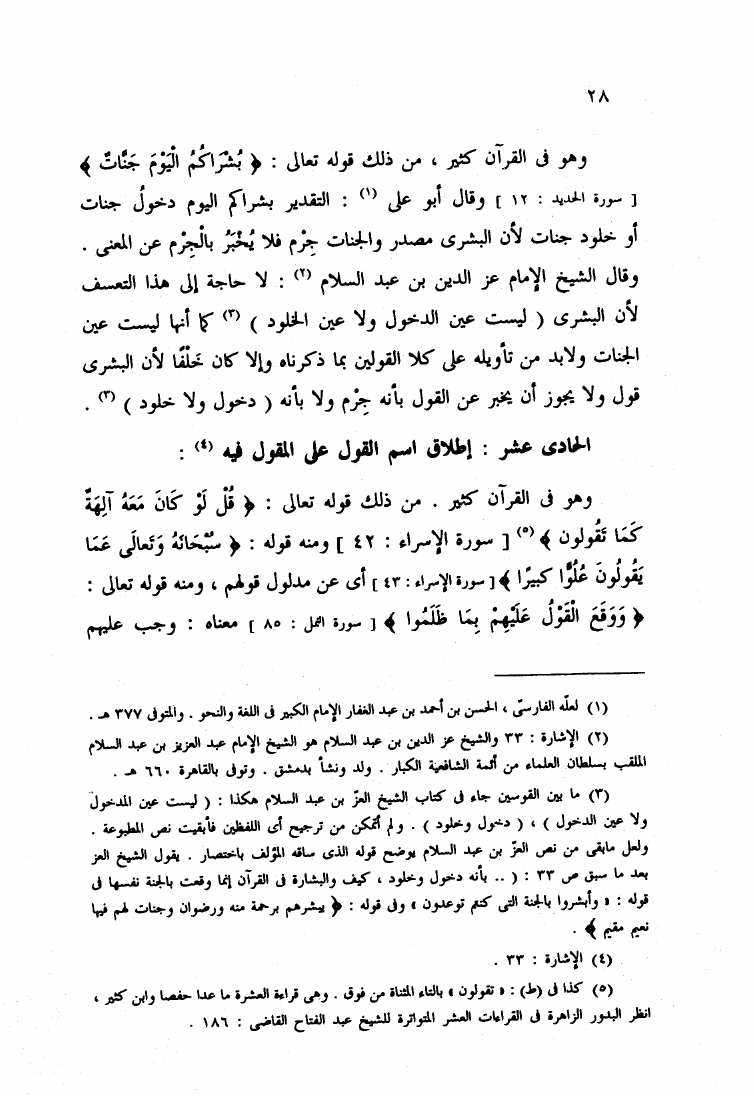 ٢٨
وهو فى القرآن كثير ، من ذلك قوله تعالى : ﴿ بُشْرَاكُمُ الْيَوْمَ جَنَّاتٌ ﴾
[ سورة الحديد : ١٢ ] وقال أبو على (١) : التقدير بشراكم اليوم دخولُ جنات
أو خلود جنات لأن البشرى مصدر والجنات جِرْم فلا يُخْبَرُ بالْجِرْم عن المعنى .
وقال الشيخ الإمام عز الدين بن عبد السلام (٢) : لا حاجة إلى هذا التعسف
لأن البشرى ( ليست عين الدخول ولا عين الخلود ) (٣) كما أنها ليست عين
الجنات ولابد من تأويله على كلا القولين بما ذكرناه وإلا كان خَلْفًا لأن البشرى
قول ولا يجوز أن يخبر عن القول بأنه جِرْم ولا بأنه ( دخول ولا خلود ) (٣) .
الحادى عشر : إطلاق اسم القول على المقول فيه (٤) :
وهو فى القرآن كثير . من ذلك قوله تعالى : ﴿ قُلْ لَوْ كَانَ مَعَهُ آلِهَةٌ
كَمَا تَقُولون ﴾ (٥) [ سورة الإسراء : ٤٢ ] ومنه قوله : ﴿ سُبْحَانَهُ وَتَعالَى عَمَا
يَقُولُونَ عُلُوًّا كبيرًا ﴾ [ سورة الإسراء : ٤٣ ] أى عن مدلول قولهم ، ومنه قوله تعالى :
﴿ وَوَقَعَ الْقَوْلُ عَلَيْهِمْ بِمَا ظَلَمُوا ﴾ [ سورة النمل : ٨٥ ] معناه : وجب عليهم
(١) لعلّه الفارسىّ ، الحسن بن أحمد بن عبد الغفار الإمام الكبير فى اللغة والنحو . والمتوفى ٣٧٧ هـ .
(٢) الإشارة : ٣٣ والشيخ عز الدين بن عبد السلام هو الشيخ الإمام عبد العزيز بن عبد السلام
الملقب بسلطان العلماء من أئمة الشافعية الكبار . ولد ونشأ بدمشق . وتوفى بالقاهرة ٦٦٠ هـ .
(٣) ما بين القوسين جاء فى كتاب الشيخ العزّ بن عبد السلام هكذا : ( ليست عين المدخول
ولا عين الدخول ) ، ( دخول وخلود ) . ولم أتمكن من ترجيح أى اللفظين فأبقيت نص المطبوعة .
ولعل مابقى من نص العزّ بن عبد السلام يوضح قوله الذى ساقه المؤلف باختصار . يقول الشيخ العز
بعد ما سبق ص ٣٣ : ( .. بأنه دخول وخلود ، كيف والبشارة فى القرآن إنما وقعت بالجنة نفسها فى
قوله : « وأبشروا بالجنة التى كنتم توعدون » وفى قوله : ﴿ يبشرهم برحمة منه ورضوان وجنات لهم فيها
نعيم مقيم ﴾ .
(٤) الإشارة : ٣٣ .
(٥) كذا فى (ط) : « تقولون » بالتاء المثناة من فوق . وهى قراءة العشرة ما عدا حفصا وابن كثير ،
انظر البدور الزاهرة فى القراءات العشر المتواترة للشيخ عبد الفتاح القاضى : ١٨٦ .